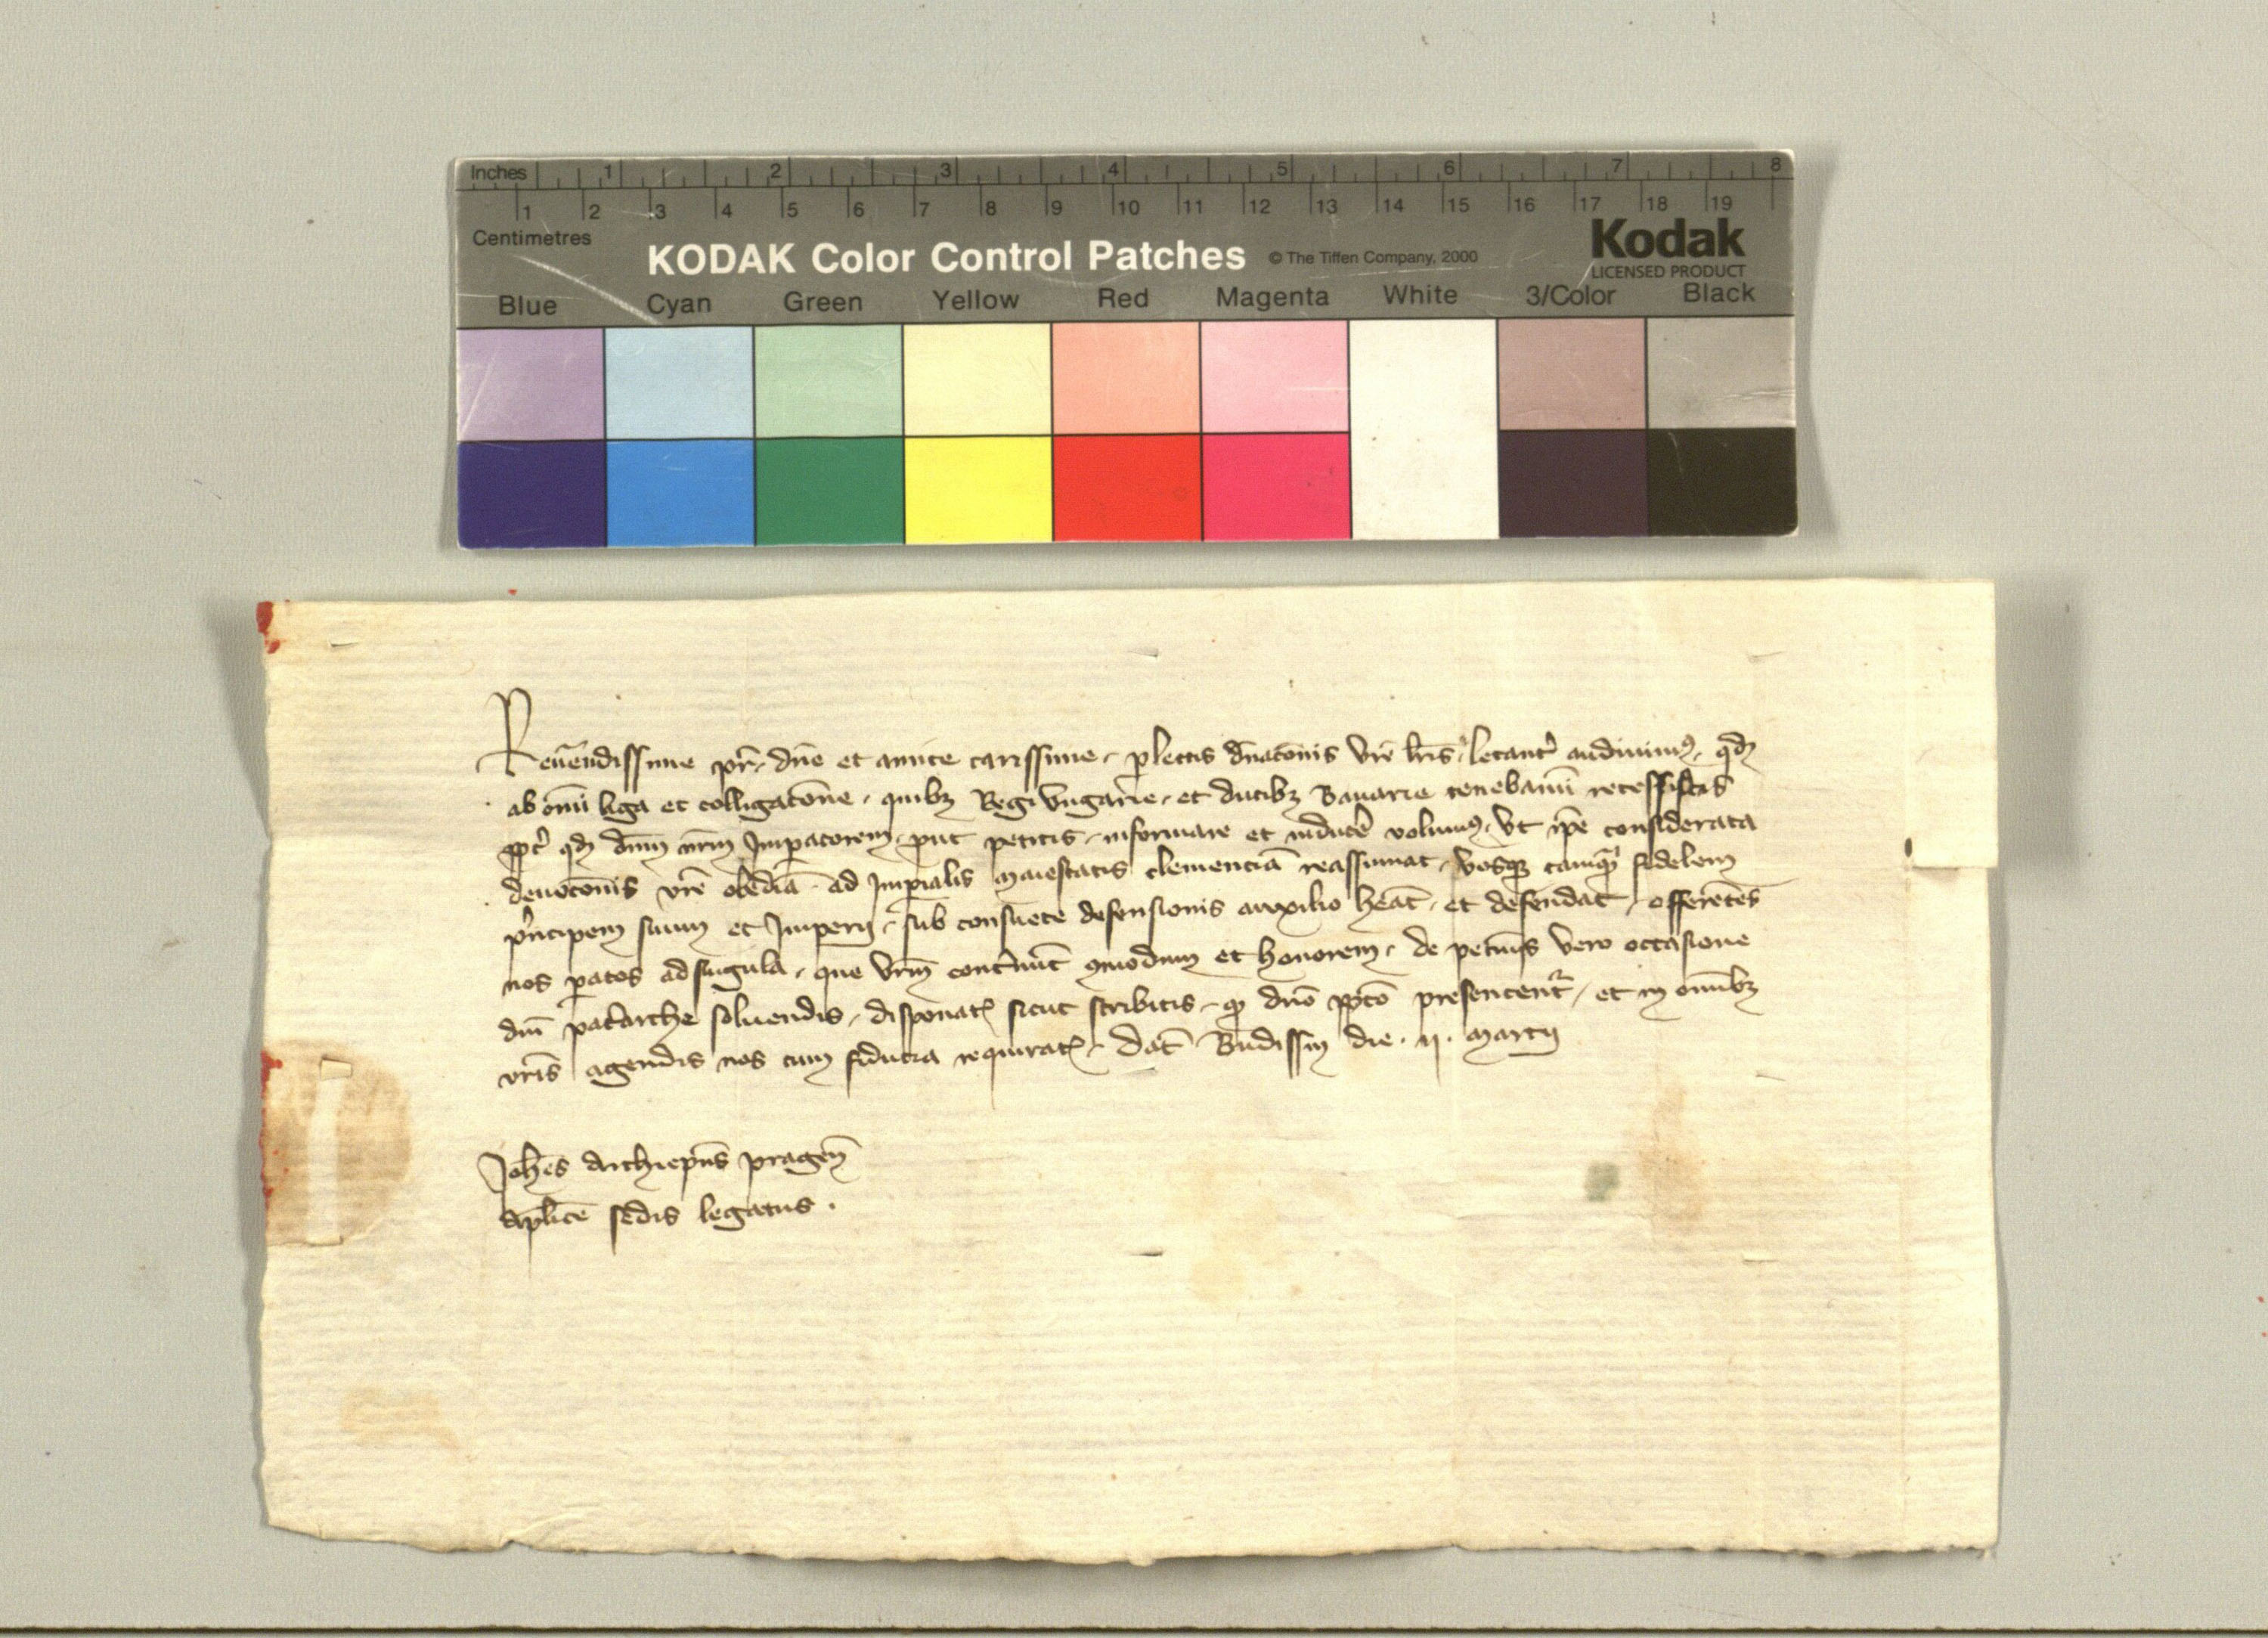 Inches 1 2 3 4 5 6 7 8
1 2 3 4 5 6 7 8 9 10 11 12 13 14 15 16 17 18 19
Centimetres
KODAK Color Control Patches © The Tiffen Company, 2000 Kodak
LICENSED PRODUCT
Blue Cyan Green Yellow Red Magenta White 3/Color Black
Reuendissime pr̄. dn̄e et amice carissime. plectis dn̄acōnis vr̄e lr̄is letant̄ audiuimꝰ. qđ
ab om̄i liga et colligacōne. quibꝫ Regi Vngarie. et ducibꝫ Bauarie tenebami recessistis
ꝓpt̄ qđ dn̄m nr̄m Imp̄atorem. ꝓut petitis. informare et induce volumꝰ. vt ip̄e considerata
deuocōnis vr̄e obediā ad Imp̄ialis maiestatis clemenciā reassumat. vosqꝫ tamqᷓ fidelem
pͥncipem suum et Imperij. sub consuete defensionis auxilio heāt. et defendat. offerētes
nos patos ad singula. que vr̄m contin̄t ꝯmodum et honorem. de vero occasione
dn̄i pat̄arche soluendis. disponatꝭ sicut scribitis. dn̄o presentent̄. et in om̄ibꝫ
vr̄is agendis nos cum fiducia requiratꝭ. Dat̄ Budissin die. ij. marcij
Joh̄es Archiep̄us pragen̄
ap̄lice sedis legatus.